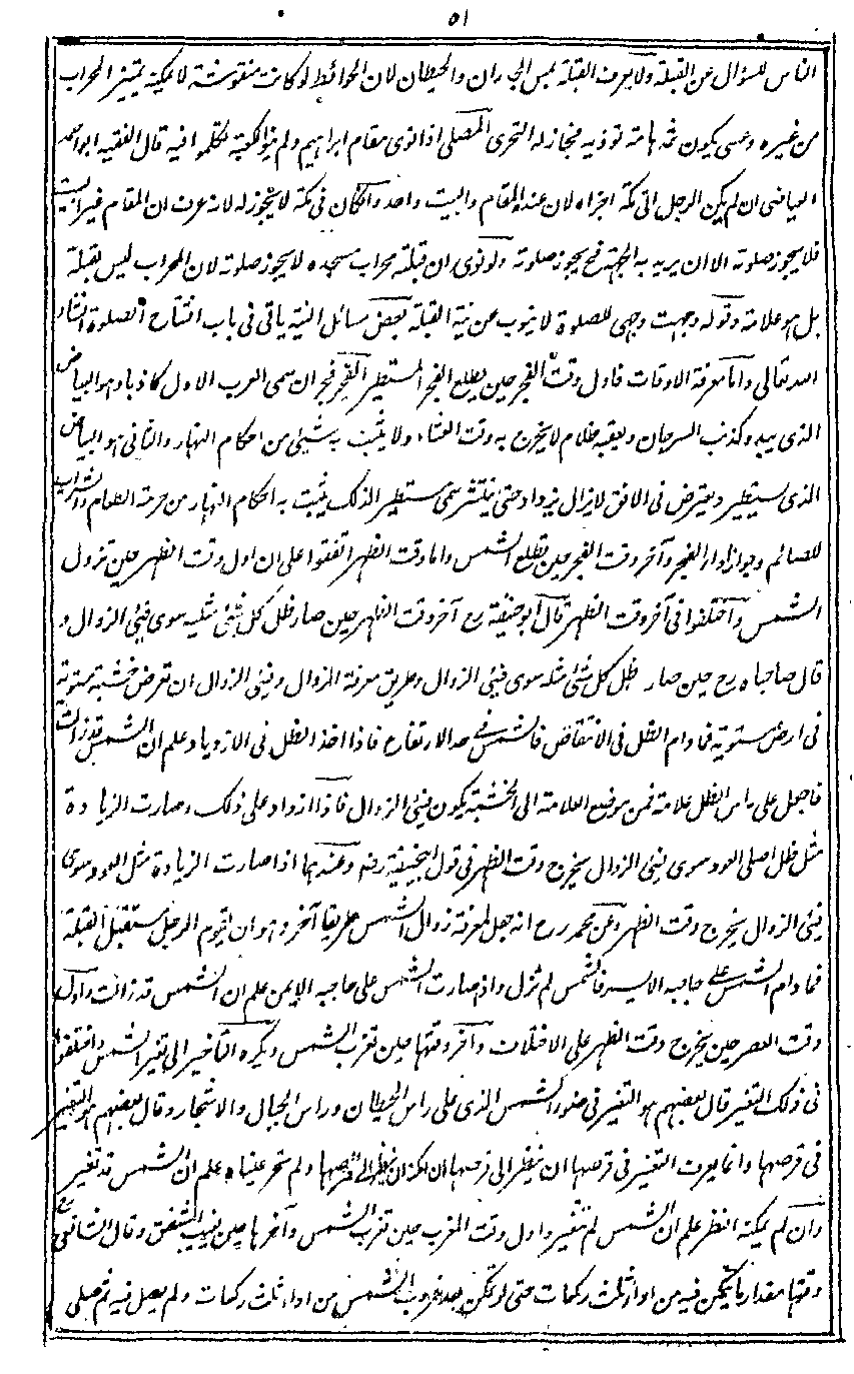 ٥١
الناس للسؤال عن القبلة ولا يعرف القبلة بمس الجدران والحيطان لان الحوائط لو كانت منقوشة لا يمكنه تمييز المحراب
من غيره وعسى يكون ثمه هامة توذيه فجاز له التحرى المصلى اذا نوى مقام ابراهيم ولم ينو الكعبة تكلموا فيه قال الفقيه ابو احمد
العياضى ان لم يكن الرجل اتى مكة اجزاه لان عنده المقام والبيت واحد وان كان اتى مكة لا يجوز له لانه عرف ان المقام غير البيت
فلا يجوز صلوته الا ان يريد به الجهة فح يجوز صلوته ولو نوى ان قبلته محراب مسجده لا يجوز صلوته لان المحراب ليس بقبلة
بل هو علامة وقوله وجهت وجهى للصلوة لا ينوب عن نية القبلة بعض مسائل النية ياتى فى باب افتتاح الصلوة انشاء
الله تعالى واما معرفة الاوقات فاول وقت الفجر حين يطلع الفجر المستطير الفجر فجران سمى العرب الاول كاذبا وهو البياض
الذى يبدو كذنب السرحان ويعقبه ظلام لا يخرج به وقت العشاء ولا يثبت به شىء من احكام النهار والثانى هو البياض
الذى يستطير ويعترض فى الافق لا يزال يزداد حتى ينتشر سمى مستطيرا لذلك يثبت به احكام النهار من حرمة الطعام والشراب
للصائم وجواز اداء الفجر وآخر وقت الفجر حين تطلع الشمس واما وقت الظهر اتفقوا على ان اول وقت الظهر حين تزول
الشمس واختلفوا فى آخر وقت الظهر قال ابو حنيفة رح آخر وقت الظهر حين صار ظل كل شىء مثليه سوى فيئ الزوال و
قال صاحباه رح حين صار ظل كل شىء مثله سوى فيئ الزوال وطريق معرفة الزوال وفيئ الزوال ان تعرض خشبة مستوية
فى ارض مستوية فما دام الظل فى الانتقاض فالشمس فى حد الارتفاع فاذا اخذ الظل فى الازدياد علم ان الشمس قد زالت
فاجعل على راس الظل علامة فمن موضع العلامة الى الخشبة يكون فيئ الزوال فاذا ازداد على ذلك وصارت الزيادة
مثل ظل اصلى العود سوى فيئ الزوال يخرج وقت الظهر فى قول ابيحنيفة رضه وعندهما اذا صارت الزيادة مثل العود سوى
فيئ الزوال يخرج وقت الظهر وعن محمد رح انه جعل لمعرفة زوال الشمس طريقا آخر وهو ان يقوم الرجل مستقبل القبلة
فما دام الشمس على حاجبه الايسر فالشمس لم تزل واذا صارت الشمس على حاجبه الايمن علم ان الشمس قد زالت واول
وقت العصر حين يخرج وقت الظهر على الاختلاف وآخر وقتها حين تغرب الشمس ويكره التأخير الى تغير الشمس واختلفوا
فى ذلك التغير قال بعضهم هو التغير فى ضوء الشمس الذى على راس الحيطان وراس الجبال والاشجار وقال بعضهم هو التغير
فى قرصها وانما يعرف التغير فى قرصها ان ينظر الى قرصها ان امكنه ان ينظر الى قرصها ولم تحر عيناه علم ان الشمس قد تغير
وان لم يمكنه النظر علم ان الشمس لم تتغير واول وقت المغرب حين تغرب الشمس وآخرها حين يغيب الشفق وقال الشافعى رح
وقتها مقدار ما يتمكن فيه من اداء ثلث ركعات حتى لو تمكن بعد غروب الشمس من اداء ثلث ركعات ولم يصل فيه ثم صلى